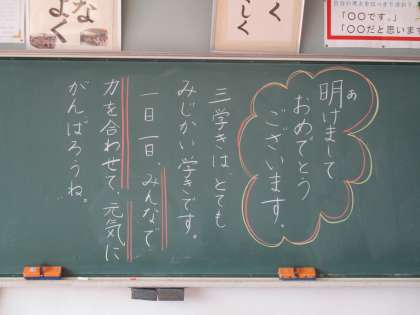 明けまして
あ
おめでとう
ございます。
三学きは、とても
みじかい学きです。
一日一日、みんなで
力を合わせて、元気に
がんばろうね。
「〇〇です。」
「〇〇だと思います
しく
なか
よく